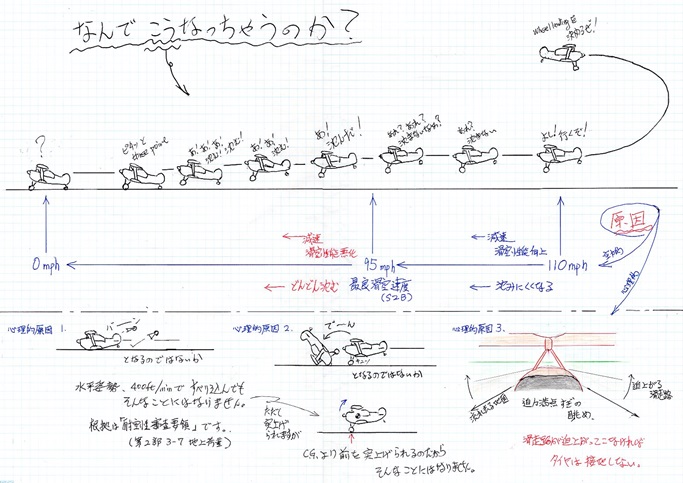 なんで こうなっちゃうのか?
Wheel landingを
決めるぞ!
?
ピタッと
three point
あ!あ!あ!
沈む!沈む!
あ!あ!
沈む!
あ!
沈んだ!
あれ?あれ?
あれ?
沈まない
よし!行くぞ!
原因
減速
滑空性能悪化
減速
滑空性能向上
0mph
95mph
110mph
どんどん沈む
最良滑空速度
(S2B)
沈みにくくなる
心理的
心理的原因 1.
バーン
となるのではないか
水平姿勢、400ft/minで すべり込んでも
そんなことにはなりません。
根拠は「耐空性審査要領」です。
(第2部 3-7 地上荷重)
心理的原因 2.
でーん
となるのではないか
突上げ
られますが
C.G.より前を突上げられるのだから
そんなことにはなりません。
心理的原因 3.
迫上がる
滑走路
迫力満点すぎの
眺め。
滑走路が迫上がってこなければ
タイヤは接地しない。